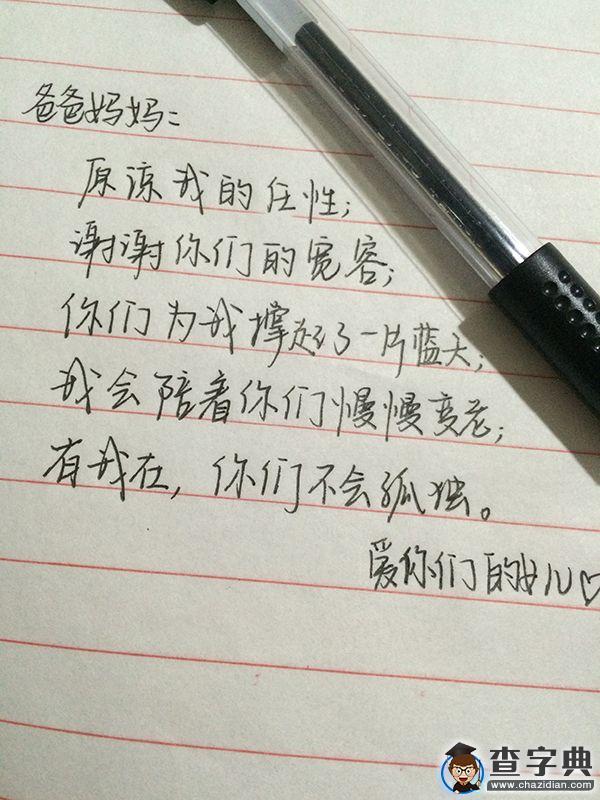 爸爸妈妈：
原谅我的任性；
谢谢你们的宽容；
你们为我撑起了一片蓝天；
我会陪着你们慢慢变老；
有我在，你们不会孤独。
爱你们的女儿♡
查字典
www.chazidian.com